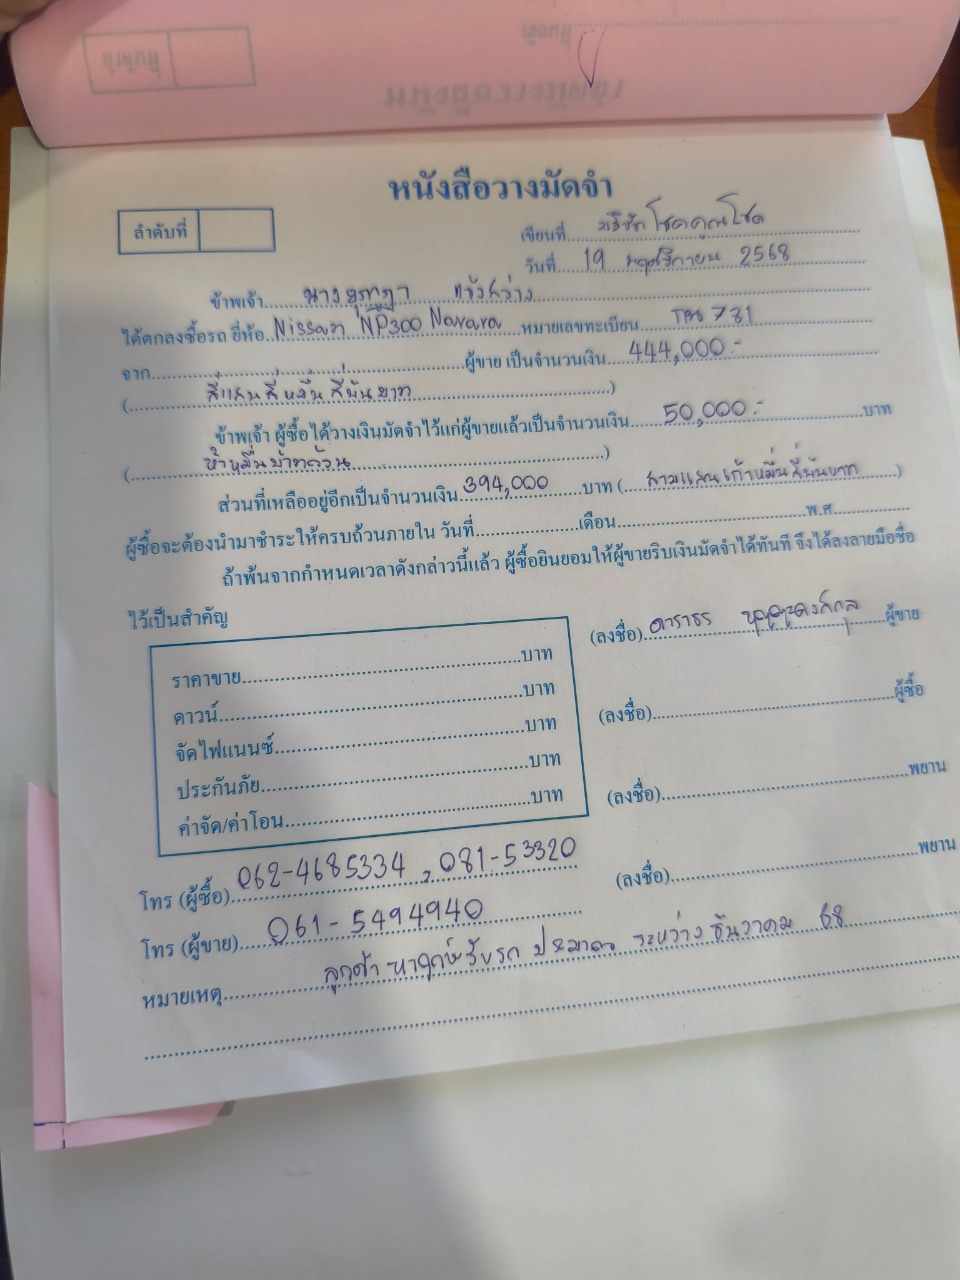 หนังสือวางมัดจำ
ลำดับที่
เขียนที่ บริษัท โชคคูณโชค
วันที่ 19 พฤศจิกายน 2568
ข้าพเจ้า นาง แจ้งสว่าง
ได้ตกลงซื้อรถ ยี่ห้อ Nissan NP300 Navara หมายเลขทะเบียน 731
จาก ผู้ขาย เป็นจำนวนเงิน 444,000.-
( สี่แสนสี่หมื่นสี่พันบาท )
ข้าพเจ้า ผู้ซื้อได้วางเงินมัดจำไว้แก่ผู้ขายแล้วเป็นจำนวนเงิน 50,000.- บาท
( ห้าหมื่นบาทถ้วน )
ส่วนที่เหลืออยู่อีกเป็นจำนวนเงิน 394,000 บาท ( สามแสนเก้าหมื่นสี่พันบาท )
ผู้ซื้อจะต้องนำมาชำระให้ครบถ้วนภายใน วันที่ เดือน พ.ศ.
ถ้าพ้นจากกำหนดเวลาดังกล่าวนี้แล้ว ผู้ซื้อยินยอมให้ผู้ขายริบเงินมัดจำได้ทันที จึงได้ลงลายมือชื่อ
ไว้เป็นสำคัญ
(ลงชื่อ) ดาราธร ผู้ขาย
ราคาขาย บาท
ดาวน์ บาท
(ลงชื่อ) ผู้ซื้อ
จัดไฟแนนซ์ บาท
ประกันภัย บาท
(ลงชื่อ) พยาน
ค่าจัด/ค่าโอน บาท
(ลงชื่อ) พยาน
โทร (ผู้ซื้อ) 062-4685334 , 081-53320
โทร (ผู้ขาย) 061-5494940
หมายเหตุ ลูกค้า หาฤกษ์รับรถ ประมาณ ระหว่าง ธันวาคม 68